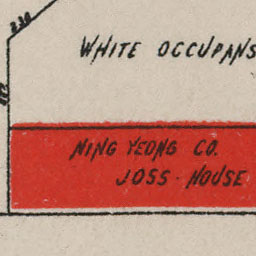 230
WHITE OCCUPANS
NING YEONG CO.
JOSS HOUSE